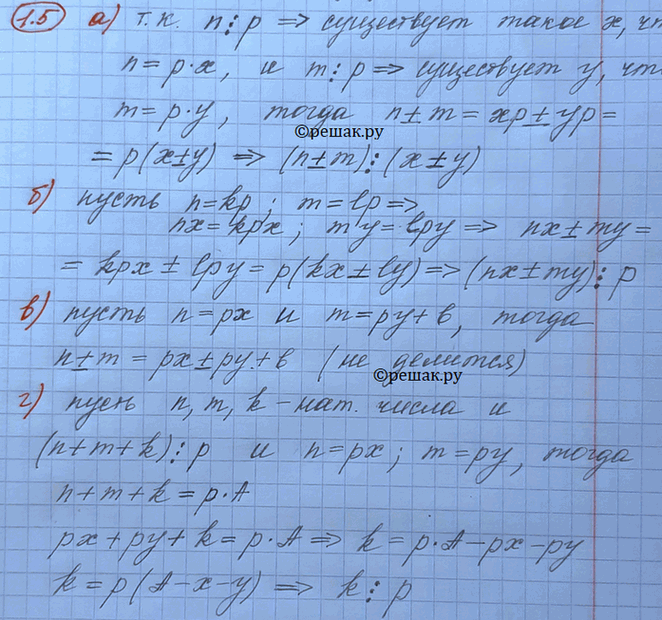 1.5 а) т.к. n⋮p => существует такое x, чт
n = p·x, и m⋮p => существует y, что
m = p·y, тогда n±m = xp±yp =
©решак.ру
= p(x±y) => (n±m)⋮(x±y)
б) пусть n=kp; m=lp =>
nx=kpx; my=lpy => nx±my =
= kpx ± lpy = p(kx±ly) => (nx±my)⋮p
в) пусть n=px и m=py+b, тогда
n±m = px±py+b (не делится)
©решак.ру
г) пусть n, m, k – нат. числа и
(n+m+k)⋮p и n=px; m=py, тогда
n+m+k = p·A
px+py+k = p·A => k = p·A-px-py
k = p(A-x-y) => k⋮p